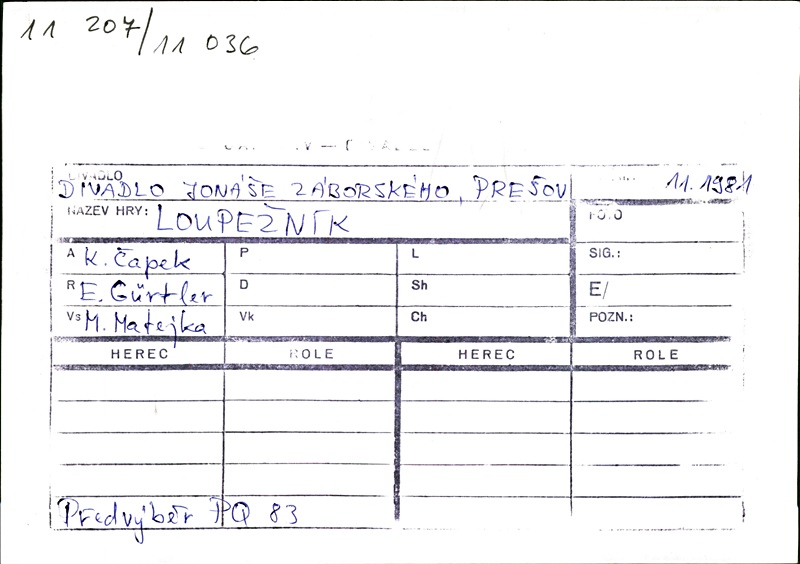 11 207/11 036
DIVADLO
DIVADLO JONÁŠE ZÁBORSKÉHO, PREŠOV 11.1981
NÁZEV HRY: LOUPEŽNÍK FOTO
A K. Čapek P L SIG.:
R E. Gürtler D Sh E/
Vs M. Matejka Vk Ch POZN.:
HEREC ROLE HEREC ROLE
Předvýběr PQ 83